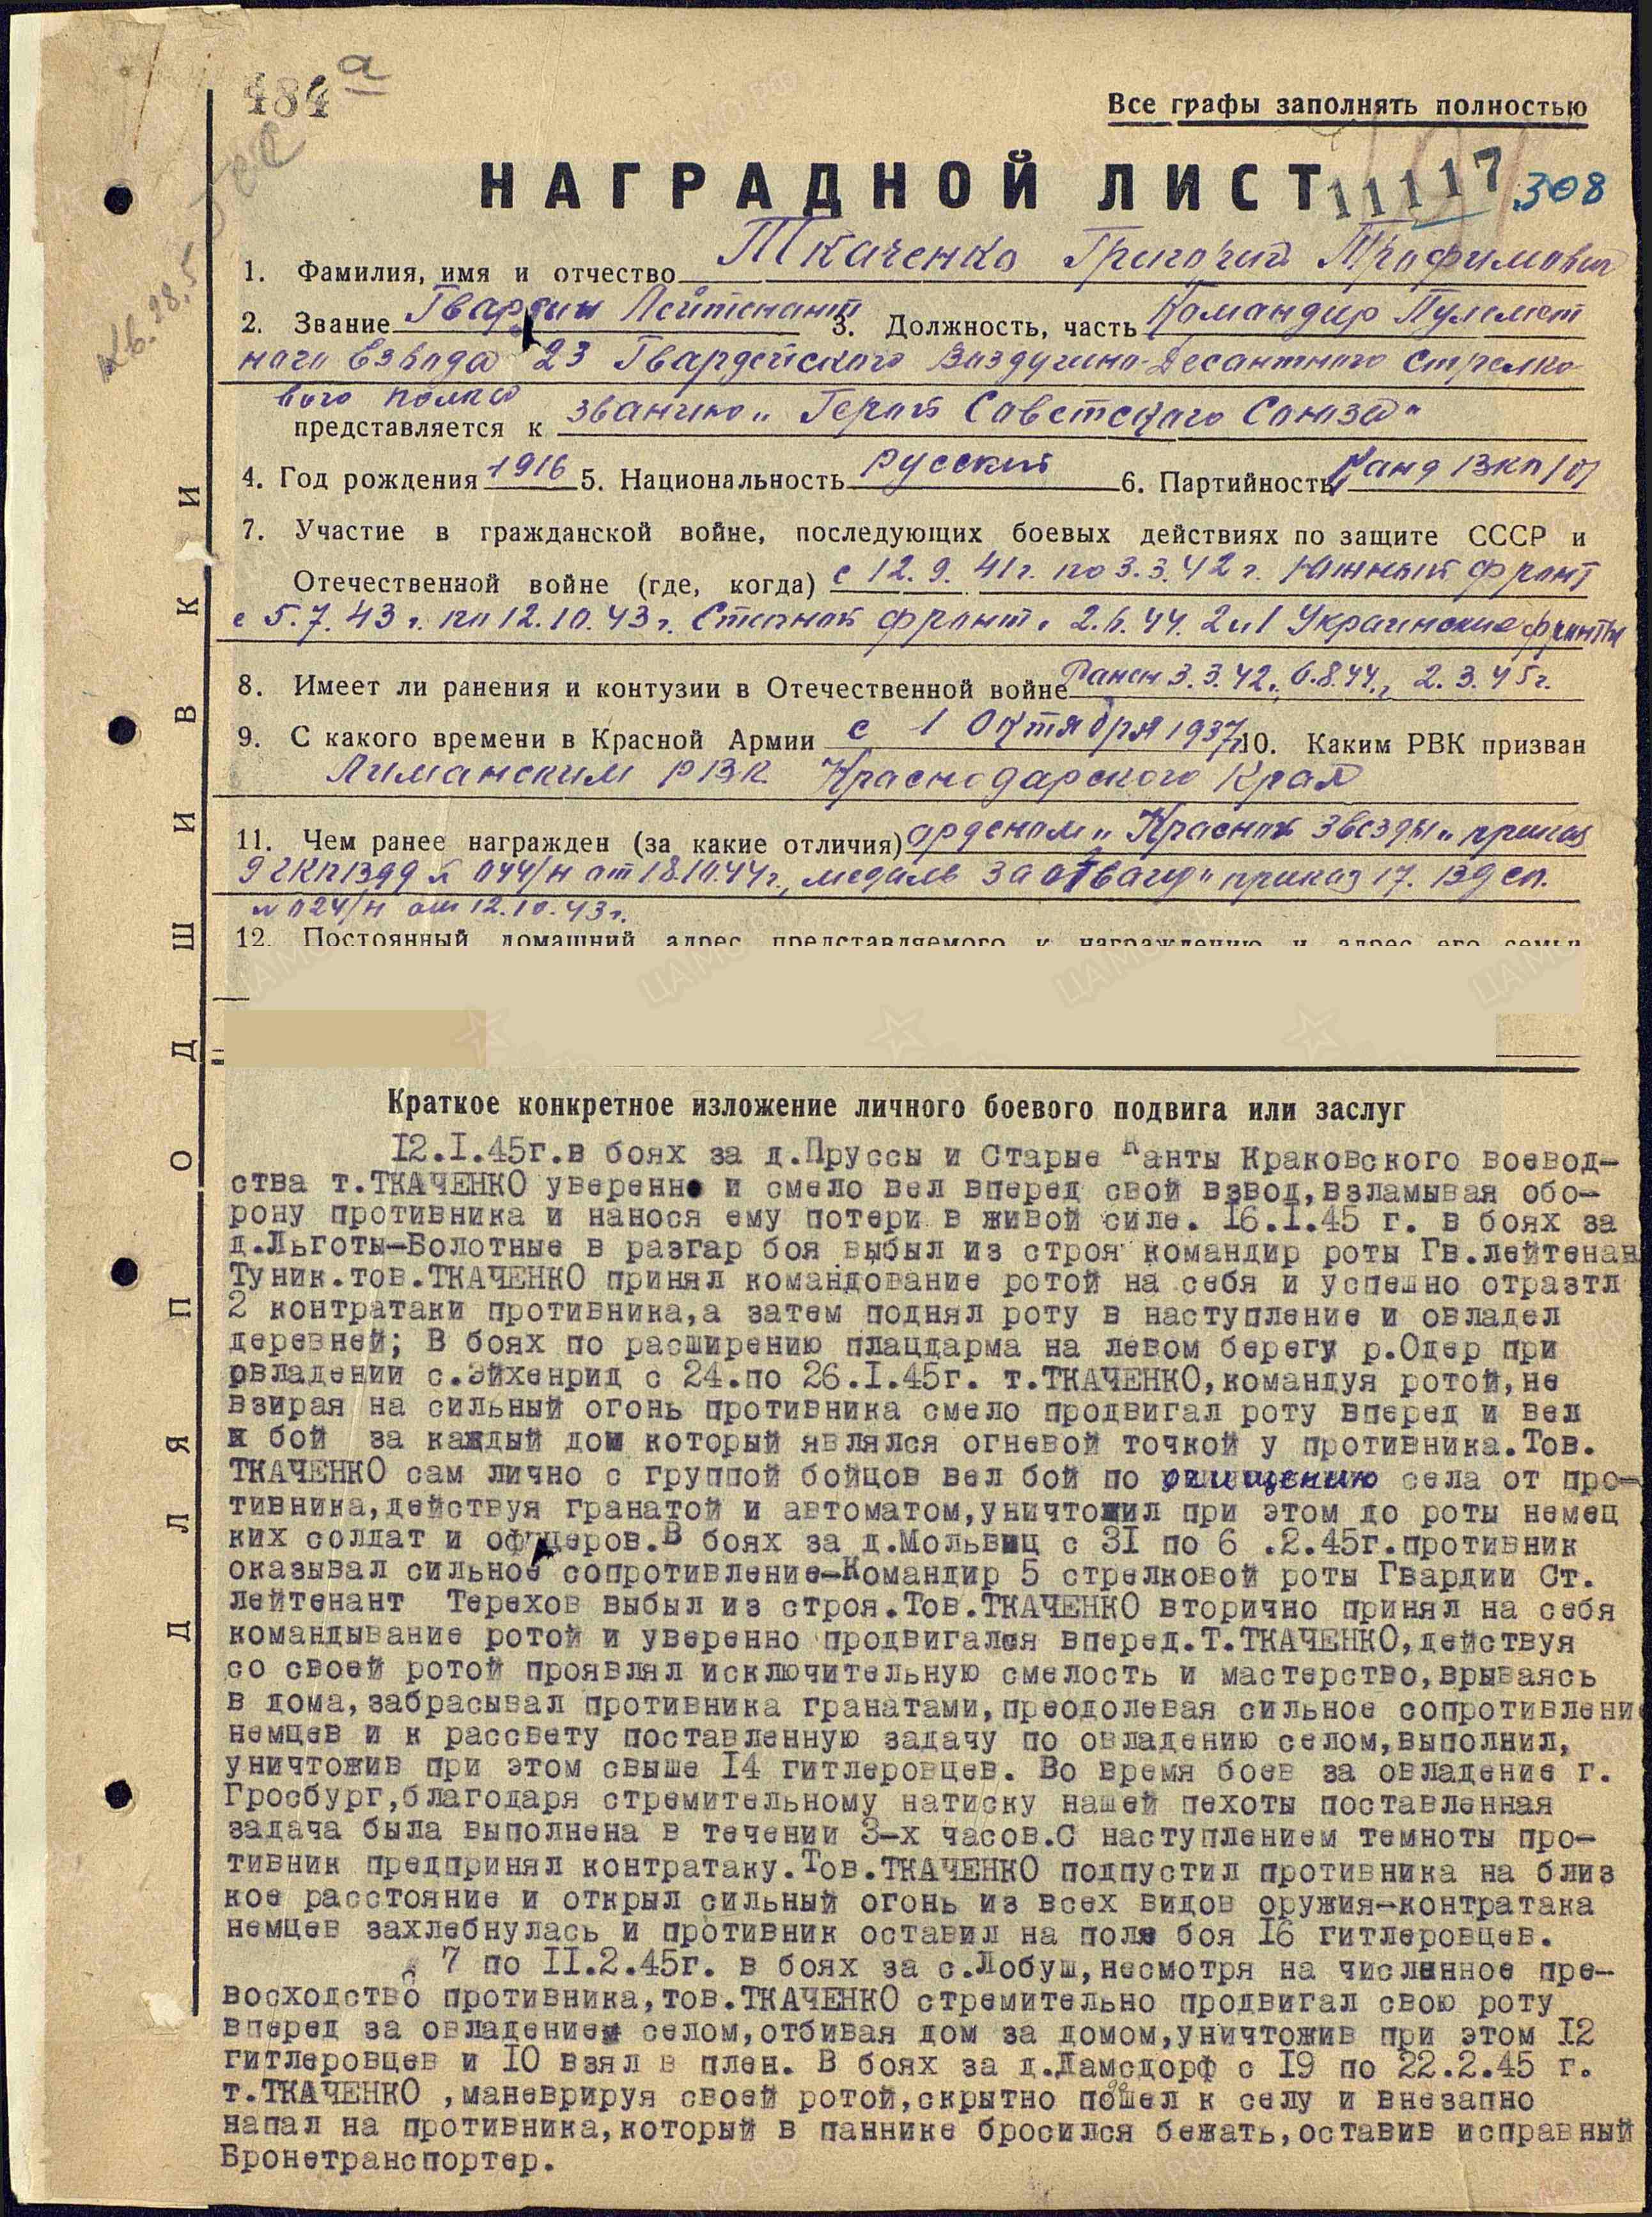 484 а
Все графы заполнять полностью
НАГРАДНОЙ ЛИСТ 11117 308
1. Фамилия, имя и отчество Ткаченко Григорий Трофимович
2. Звание Гвардии Лейтенант 3. Должность, часть Командир Пулемет
ного Взвода 23 Гвардейского Воздушно-Десантного Стрелко-
вого полка
представляется к званию „Герой Советского Союза"
4. Год рождения 1916 5. Национальность русский 6. Партийность Канд ВКП/б/
7. Участие в гражданской войне, последующих боевых действиях по защите СССР и
Отечественной войне (где, когда) с 12.9.41г. по 3.3.42г. Южный фронт
с 5.7.43г. по 12.10.43г. Степной фронт с 2.6.44. 2 и 1 Украинские фронты
8. Имеет ли ранения и контузии в Отечественной войне Ранен 3.3.42., 6.8.44., 2.3.45г.
9. С какого времени в Красной Армии с 1 Октября 1937 10. Каким РВК призван
Лиманским РВК Краснодарского Края
11. Чем ранее награжден (за какие отличия) орденом „Красной Звезды" приказ
9 гКПВДД № 044/н от 18.10.44г., медаль За отвагу" приказ 17. ВДСП.
№ 024/н от 12.10.43г.
12. Постоянный домашний адрес представляемого к награждению и адрес его семьи
ДЛЯ ПОДШИВКИ
Краткое конкретное изложение личного боевого подвига или заслуг
12.I.45г.в боях за д.Пруссы и Старые Канты Краковского воевод-
ства т.ТКАЧЕНКО уверенно и смело вел вперед свой взвод,взламывая обо-
рону противника и нанося ему потери в живой силе. 16.I.45 г. в боях за
д.Льготы-Болотные в разгар боя выбыл из строя командир роты Гв.лейтенан
Туник.тов.ТКАЧЕНКО принял командование ротой на себя и успешно отразтл
2 контратаки противника,а затем поднял роту в наступление и овладел
деревней; В боях по расширению плацдарма на левом берегу р.Одер при
овладении с.Эйхенрид с 24.по 26.I.45г. т.ТКАЧЕНКО,командуя ротой,не
взирая на сильный огонь противника смело продвигал роту вперед и вел
бой за каждый дом который являлся огневой точкой у противника.Тов.
ТКАЧЕНКО сам лично с группой бойцов вел бой по очищению села от про-
тивника,действуя гранатой и автоматом,уничтожил при этом до роты немец
ких солдат и офицеров.В боях за д.Мольвиц с 31 по 6 .2.45г.противник
оказывал сильное сопротивление-Командир 5 стрелковой роты Гвардии Ст.
лейтенант Терехов выбыл из строя.Тов.ТКАЧЕНКО вторично принял на себя
командывание ротой и уверенно продвигался вперед.Т.ТКАЧЕНКО,действуя
со своей ротой проявлял исключительную смелость и мастерство,врываясь
в дома,забрасывал противника гранатами,преодолевая сильное сопротивление
немцев и к рассвету поставленную задачу по овладению селом,выполнил,
уничтожив при этом свыше 14 гитлеровцев. Во время боев за овладение г.
Гросбург,благодаря стремительному натиску нашей пехоты поставленная
задача была выполнена в течении 3-х часов.С наступлением темноты про-
тивник предпринял контратаку.Тов.ТКАЧЕНКО подпустил противника на близ
кое расстояние и открыл сильный огонь из всех видов оружия-контратака
немцев захлебнулась и противник оставил на поле боя 16 гитлеровцев.
С 7 по II.2.45г. в боях за с.Лобуш,несмотря на численное пре-
восходство противника,тов.ТКАЧЕНКО стремительно продвигал свою роту
вперед за овладением селом,отбивая дом за домом,уничтожив при этом 12
гитлеровцев и 10 взял в плен. В боях за д.Дамсдорф с 19 по 22.2.45 г.
т.ТКАЧЕНКО ,маневрируя своей ротой,скрытно подошел к селу и внезапно
напал на противника,который в паннике бросился бежать,оставив исправный
Бронетранспортер.